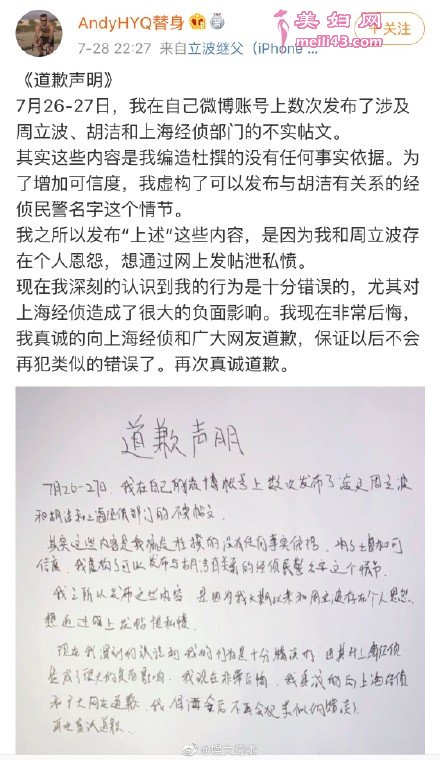 AndyHYQ替身
美妇网
meili43.com
关注
7-28 22:27 来自立波继父（iPhone
《道歉声明》
7月26-27日，我在自己微博账号上数次发布了涉及
周立波、胡洁和上海经侦部门的不实帖文。
其实这些内容是我编造杜撰的没有任何事实依据。为
了增加可信度，我虚构了可以发布与胡洁有关系的经
侦民警名字这个情节。
我之所以发布“上述”这些内容，是因为我和周立波存
在个人恩怨，想通过网上发帖泄私愤。
现在我深刻的认识到我的行为是十分错误的，尤其对
上海经侦造成了很大的负面影响。我现在非常后悔，
我真诚的向上海经侦和广大网友道歉，保证以后不会
再犯类似的错误了。再次真诚道歉。
道歉声明
7月26-27日 我在自己的微博账号上数次发布了涉及周立波
和胡洁和上海经侦部门的不实帖文.
其实这些内容是我编造杜撰的没有任何事实依据. 为了增加可
信度, 我虚构了可以发布与胡洁有关系的经侦民警名字这个情节.
我之所以发布这些内容, 是因为我长期以来和周立波存在个人恩怨
想通过网上发帖泄私愤.
现在我深刻的认识到我的行为是十分错误的, 尤其对上海经侦
造成了很大的负面影响, 我现在非常后悔, 我真诚的向上海经侦
和广大网友道歉, 我保证今后不再会犯类似的错误!
再次真诚道歉.